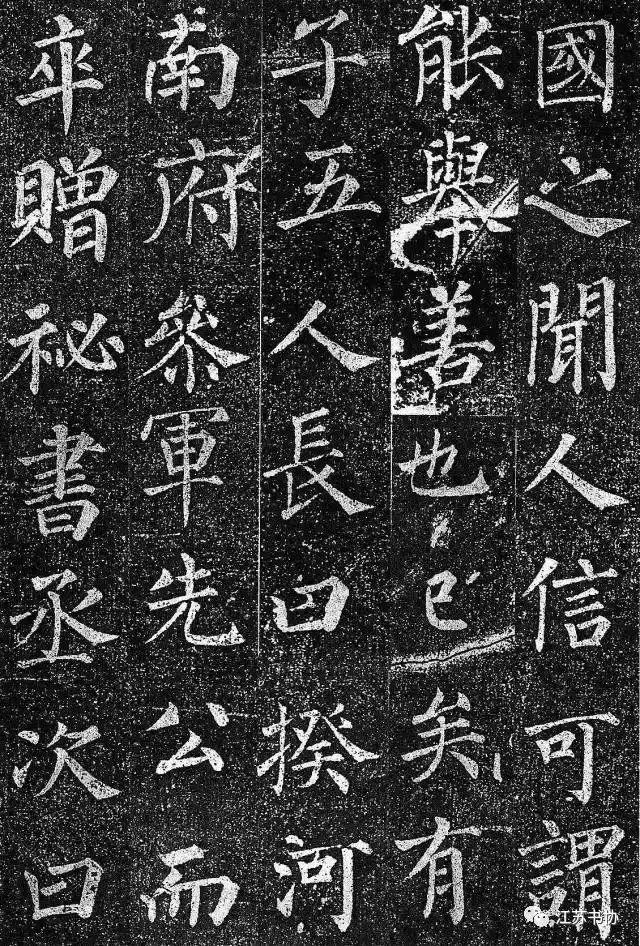 國之聞人信可謂
能舉善也已矣有
子五人長曰揆河
南府參軍先公而
卒贈祕書丞次曰
江苏书协